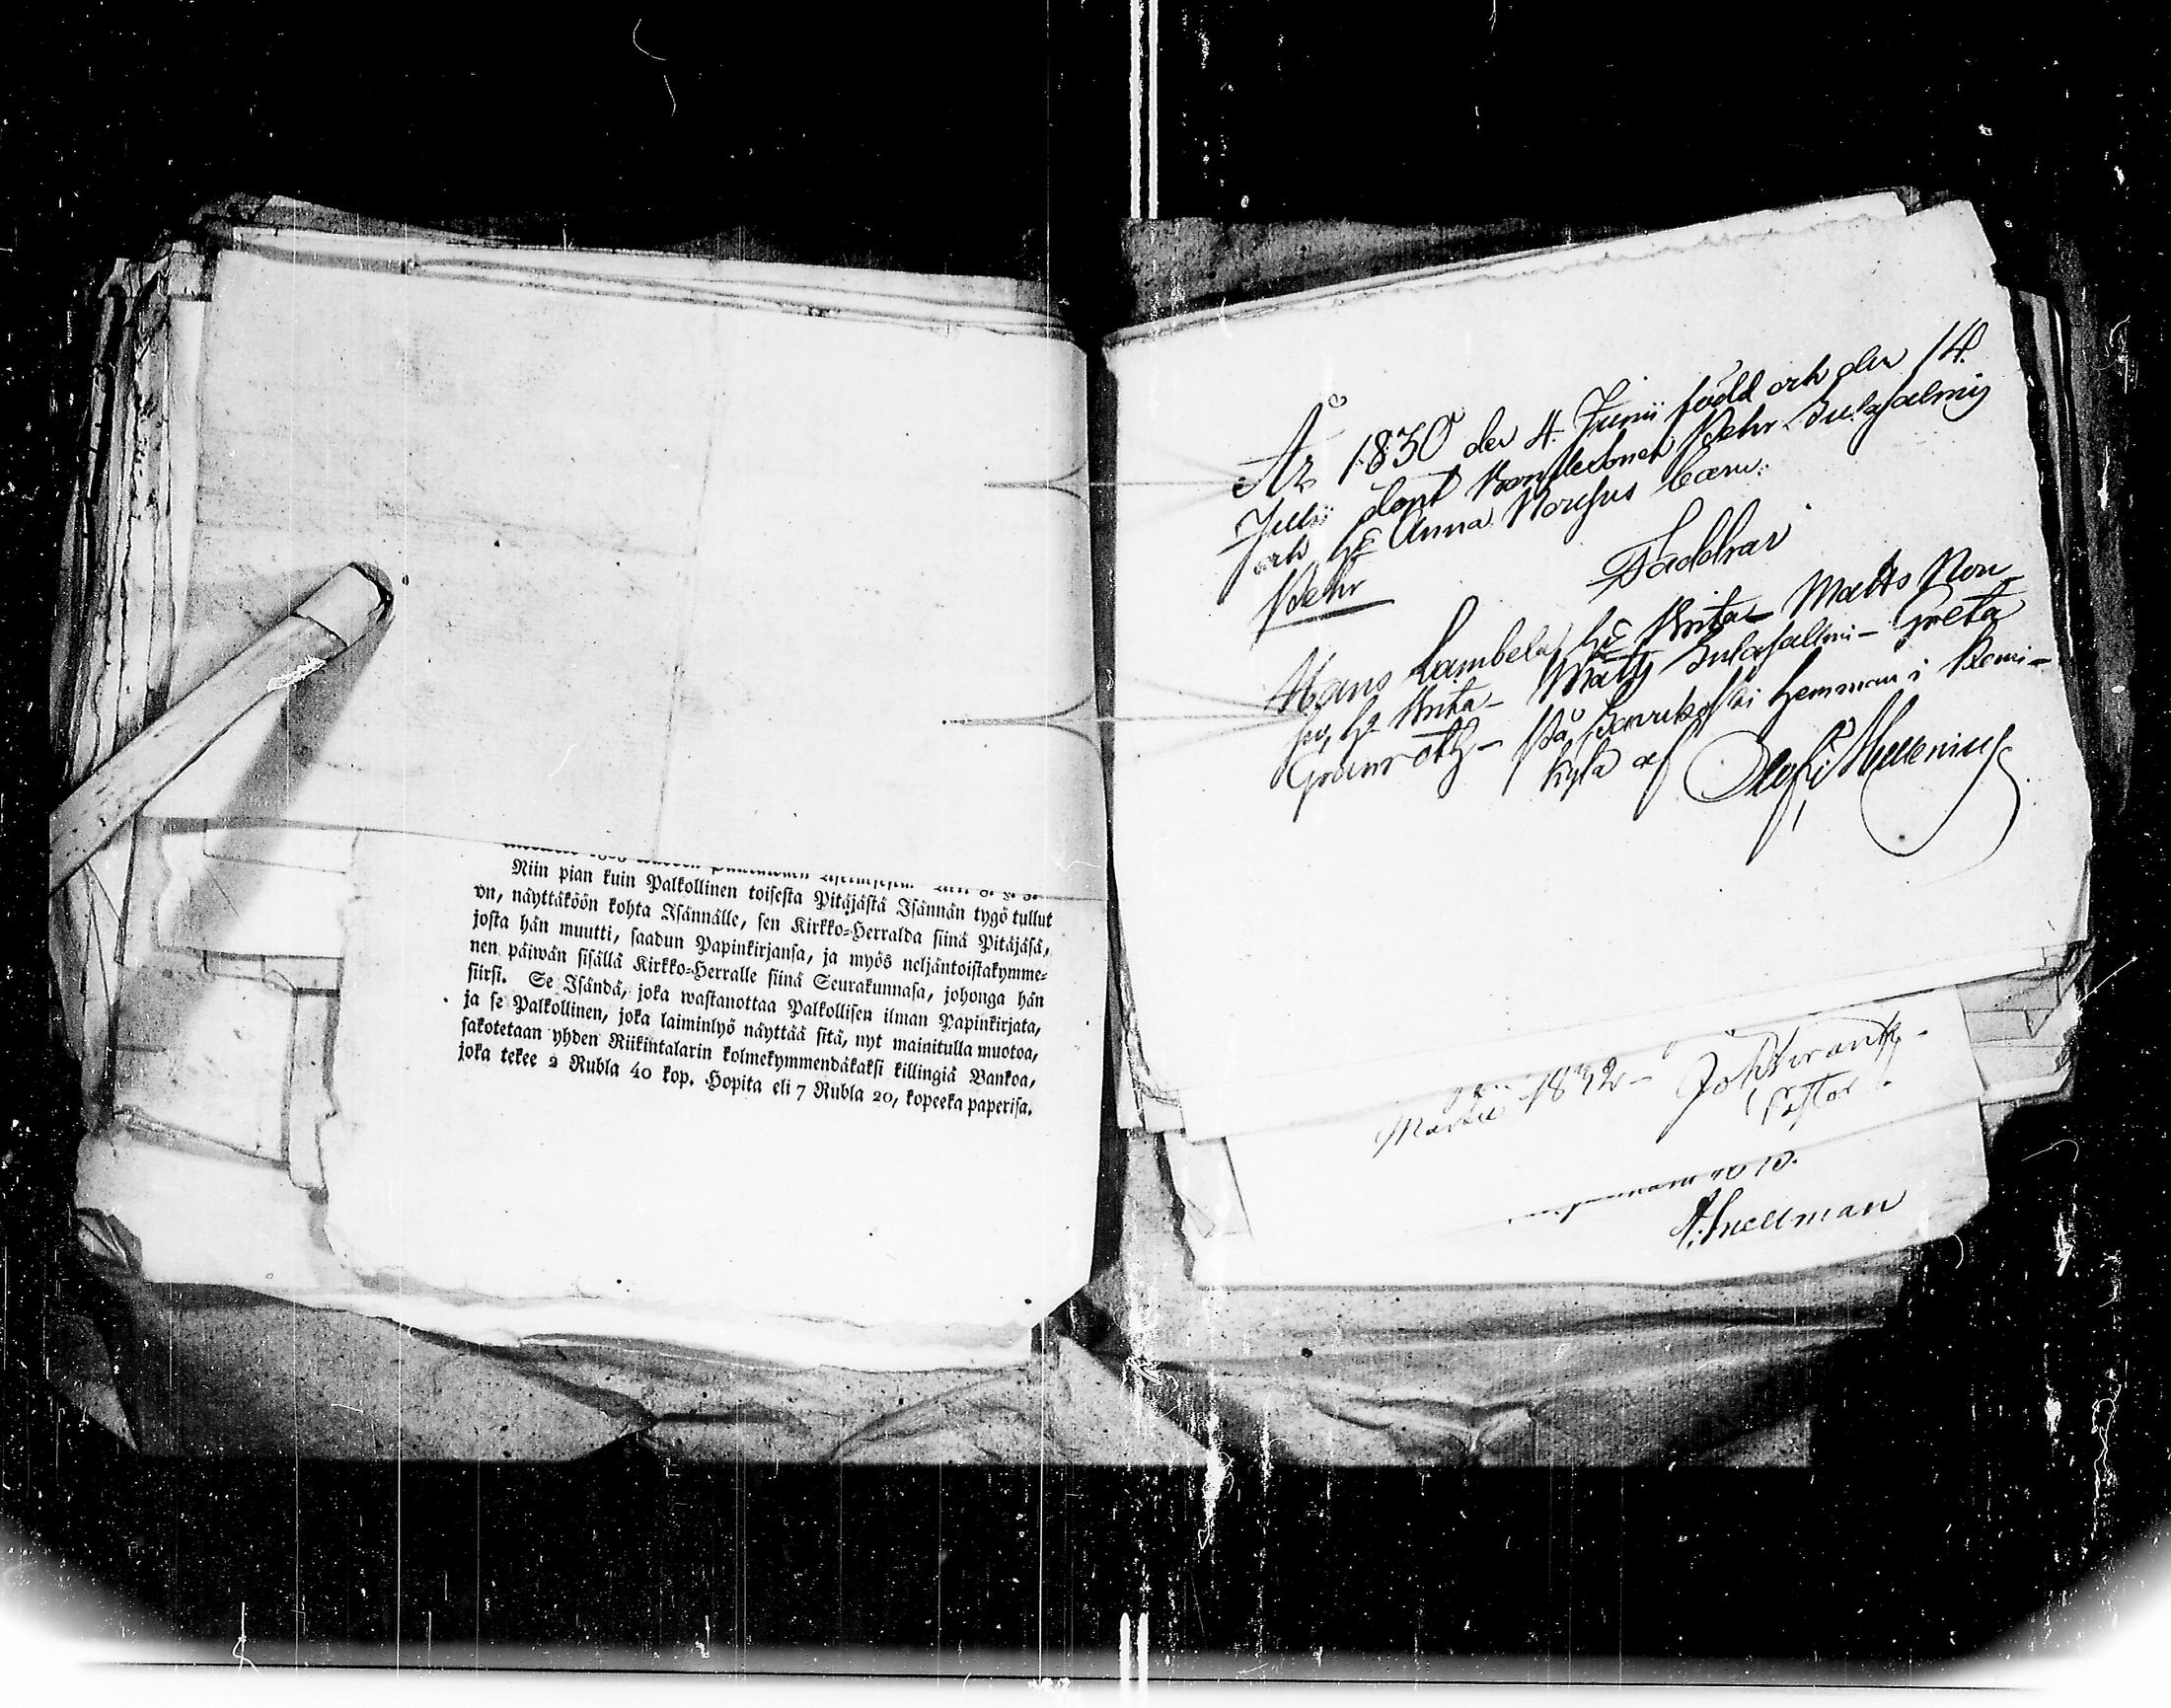 Niin pian kuin Palkollinen toisesta Pitäjästä Isännän tygö tullut
on, näyttäköön kohta Isännälle, sen Kirkko-Herralda siinä Pitäjäsä,
josta hän muutti, saadun Papinkirjansa, ja myös neljäntoistakymme-
nen päiwän sisällä Kirkko-Herralle siinä Seurakunnasa, johonga hän
siirsi. Se Isändä, joka wastanottaa Palkollisen ilman Papinkirjata,
ja se Palkollinen, joka laiminlyö näyttää sitä, nyt mainitulla muotoa,
sakotetaan yhden Riikintalarin kolmekymmendäkaksi killingiä Bankoa,
joka tekee 2 Rubla 40 kop. Hopita eli 7 Rubla 20, kopeeka paperisa.
År 1830 den 4. Junii född och den 14.
Julii döpt Pehr
och h: Anna barn:
Pehr
Faddrar
Hans Lambela, h: Brita - Matts
h: Brita - Matts - Greta
Granroth - På hemman i Kemi-
kylä af
Martii 1832 - Joh Wirank
Pastor.
A. Snellman